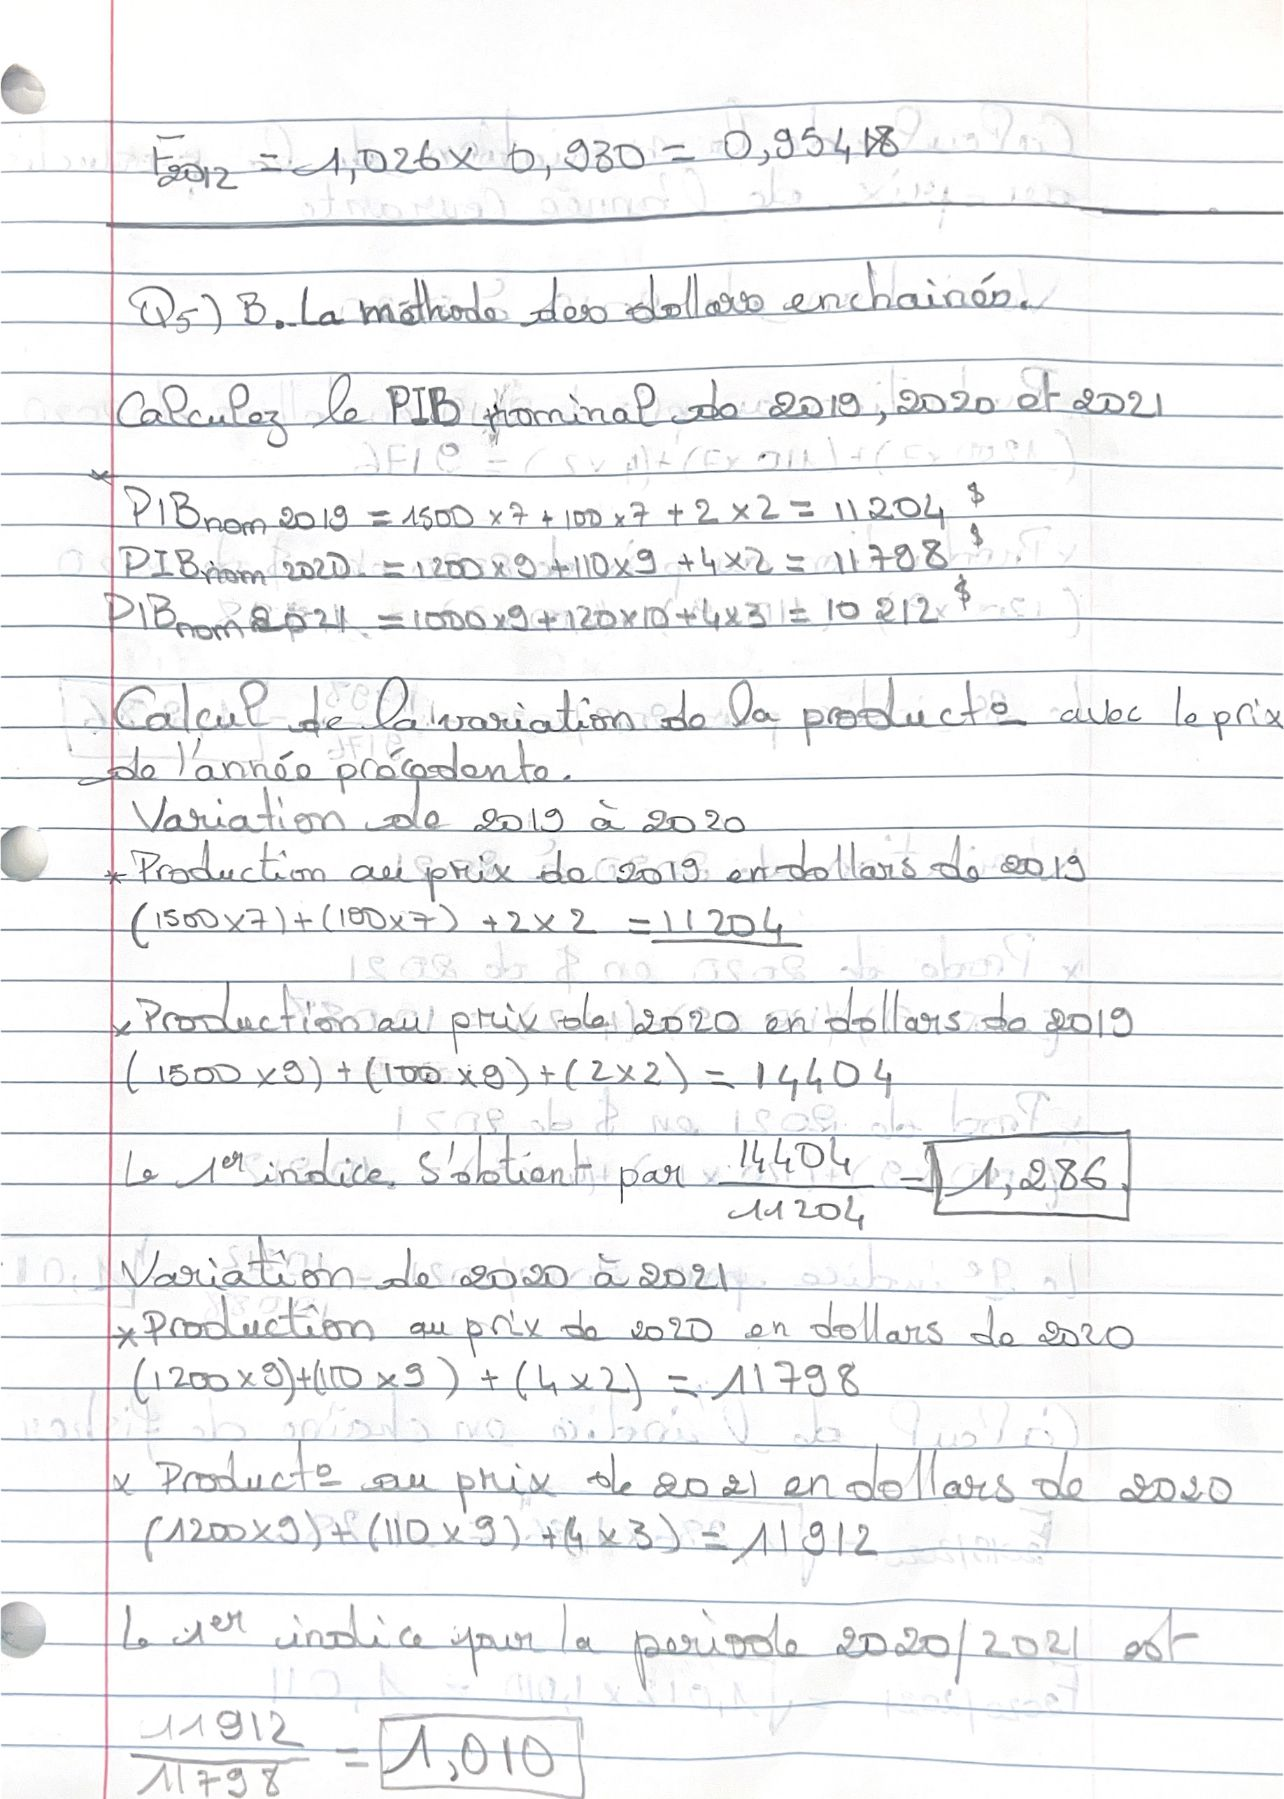 F̄2012 = 1,026 x 0,930 = 0,95418
Q5) B. La méthode des dollars enchainés.
Calculez le PIB nominal de 2019, 2020 et 2021
*
PIBnom 2019 = 1500 x 7 + 100 x 7 + 2 x 2 = 11204 $
PIBnom 2020. = 1200 x 9 + 110 x 9 + 4 x 2 = 11798 $
PIBnom 2021. = 1000 x 9 + 120 x 10 + 4 x 3 = 10212 $
Calcul de la variation de la productº avec le prix
de l'année précedente.
Variation de 2019 à 2020
* Production au prix de 2019 en dollars de 2019
(1500 x 7) + (100 x 7) + 2 x 2 = 11204
x Production au prix de 2020 en dollars de 2019
(1500 x 9) + (100 x 9) + (2 x 2) = 14404
Le 1er indice. s'obtient par 14404 / 11204 = 1,286.
Variation de 2020 à 2021
* Production au prix de 2020 en dollars de 2020
(1200 x 9) + (110 x 9) + (4 x 2) = 11798
x Productº au prix de 2021 en dollars de 2020
(1200 x 9) + (110 x 9) + (4 x 3) = 11912
Le 1er indice pour la periode 2020/2021 est
11912 / 11798 = 1,010